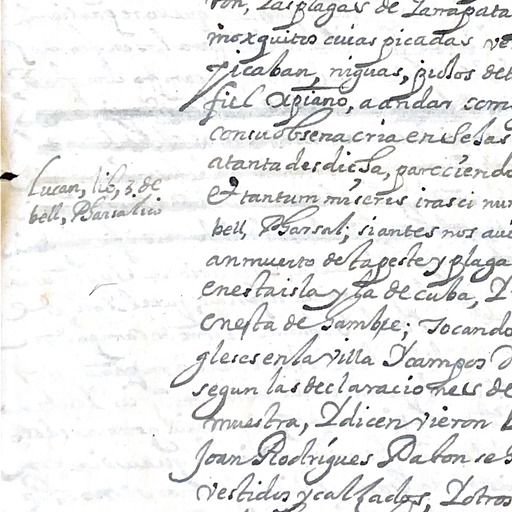 ron, Las plagas de Garrapata
moxquitos cuias picadas ve
picaban, niguas, piulos de
fiel Xpiano, a andar com
con su obsena cria en Le Las
atanta desdicha, pareciendo
Lucan, lib, 3. de
bell, Pharsalico
Et tantum miseris irasci nu
bell, Pharsal; si antes nos aui
an muerto de la peste y plaga
en esta isla y la de cuba, I
en esta de hambre; Tocando
gleses en la villa Y campos
segun las declaraciones de
muestra, Y dicen vieron
Joan Rodrigues Pabon se
vestidos y calçados, Y otros